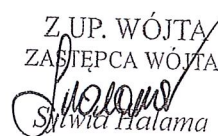 Z UP. WÓJTA
ZASTĘPCA WÓJTA
Sylwia Halama